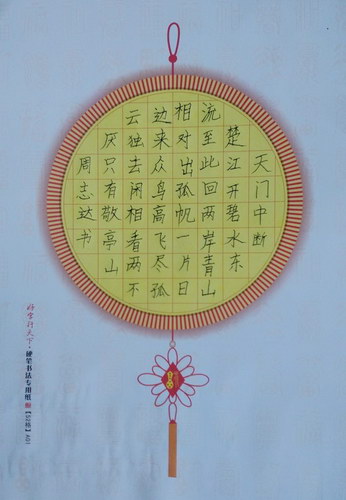 天门中断
楚江开碧水东
流至此回两岸青山
相对出孤帆一片日
边来众鸟高飞尽孤
云独去闲相看两不
厌只有敬亭山
周志达书
好字行天下·硬笔书法专用纸【50格】A01